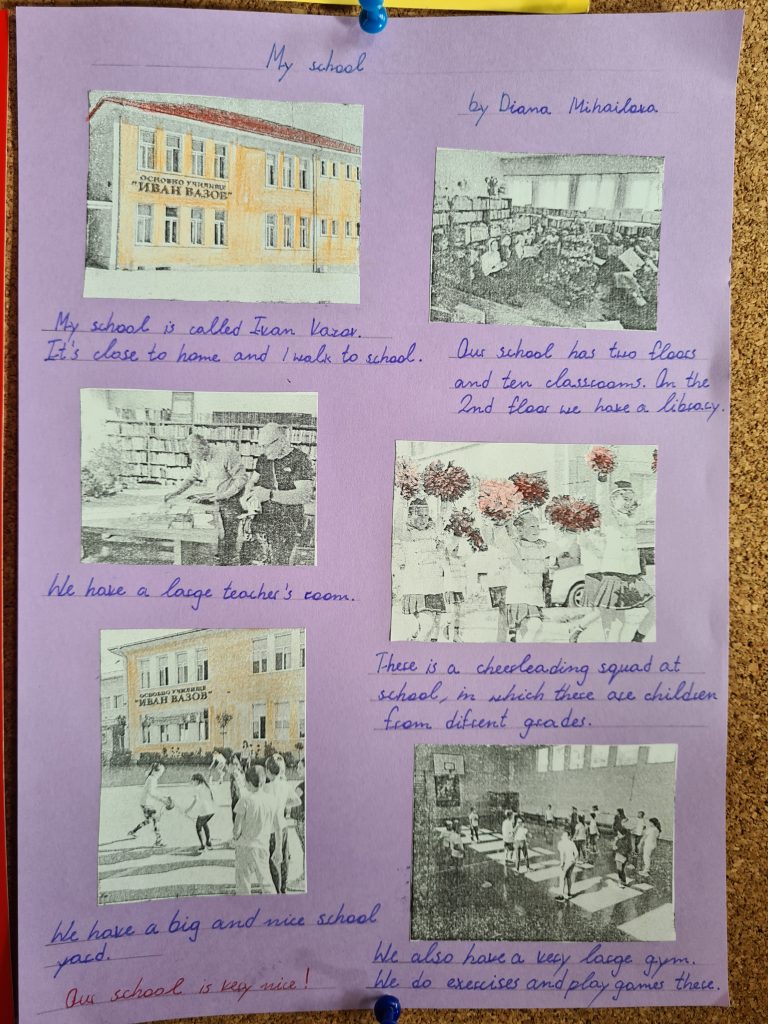 My school
by Diana Mihailova
ОСНОВНО УЧИЛИЩЕ
"ИВАН ВАЗОВ"
My school is called Ivan Vazov.
It's close to home and I walk to school.
Our school has two floors
and ten classrooms. On the
2nd floor we have a library.
We have a large teacher's room.
There is a cheerleading squad at
school, in which there are children
from difrent grades.
ОСНОВНО УЧИЛИЩЕ
"ИВАН ВАЗОВ"
We have a big and nice school
yard.
Our school is very nice!
We also have a very large gym.
We do exercises and play games there.